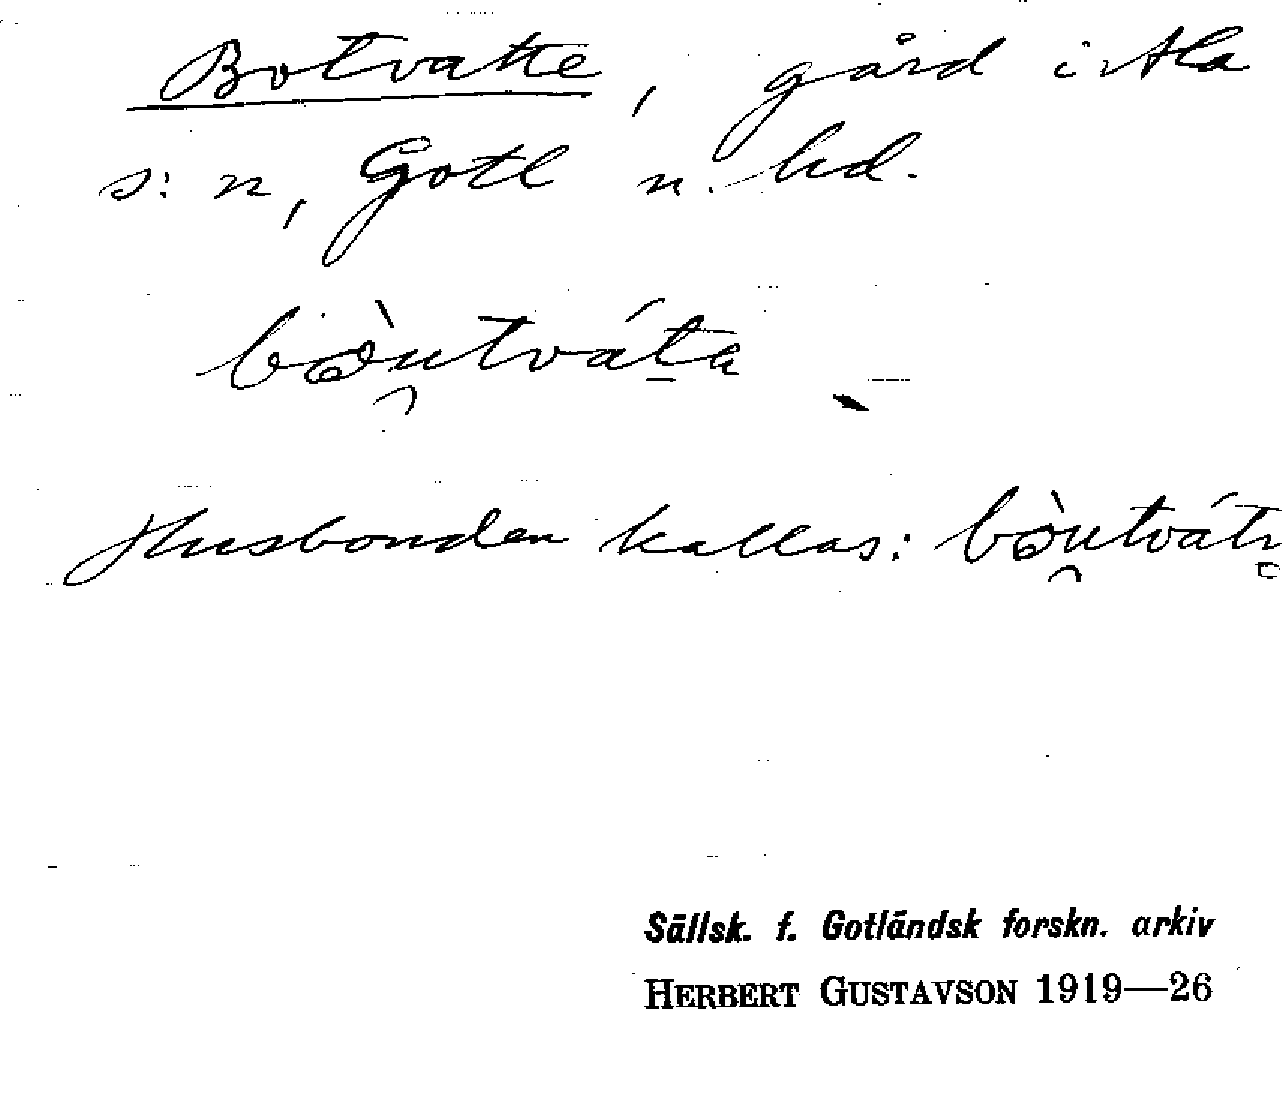 Botvatte, gård i Ala
s:n, Gotl n. hd.
bòu̯tváta
Husbonden kallas: bòu̯tvátn
Sällsk. f. Gotländsk forskn. arkiv
HERBERT GUSTAVSON 1919—26